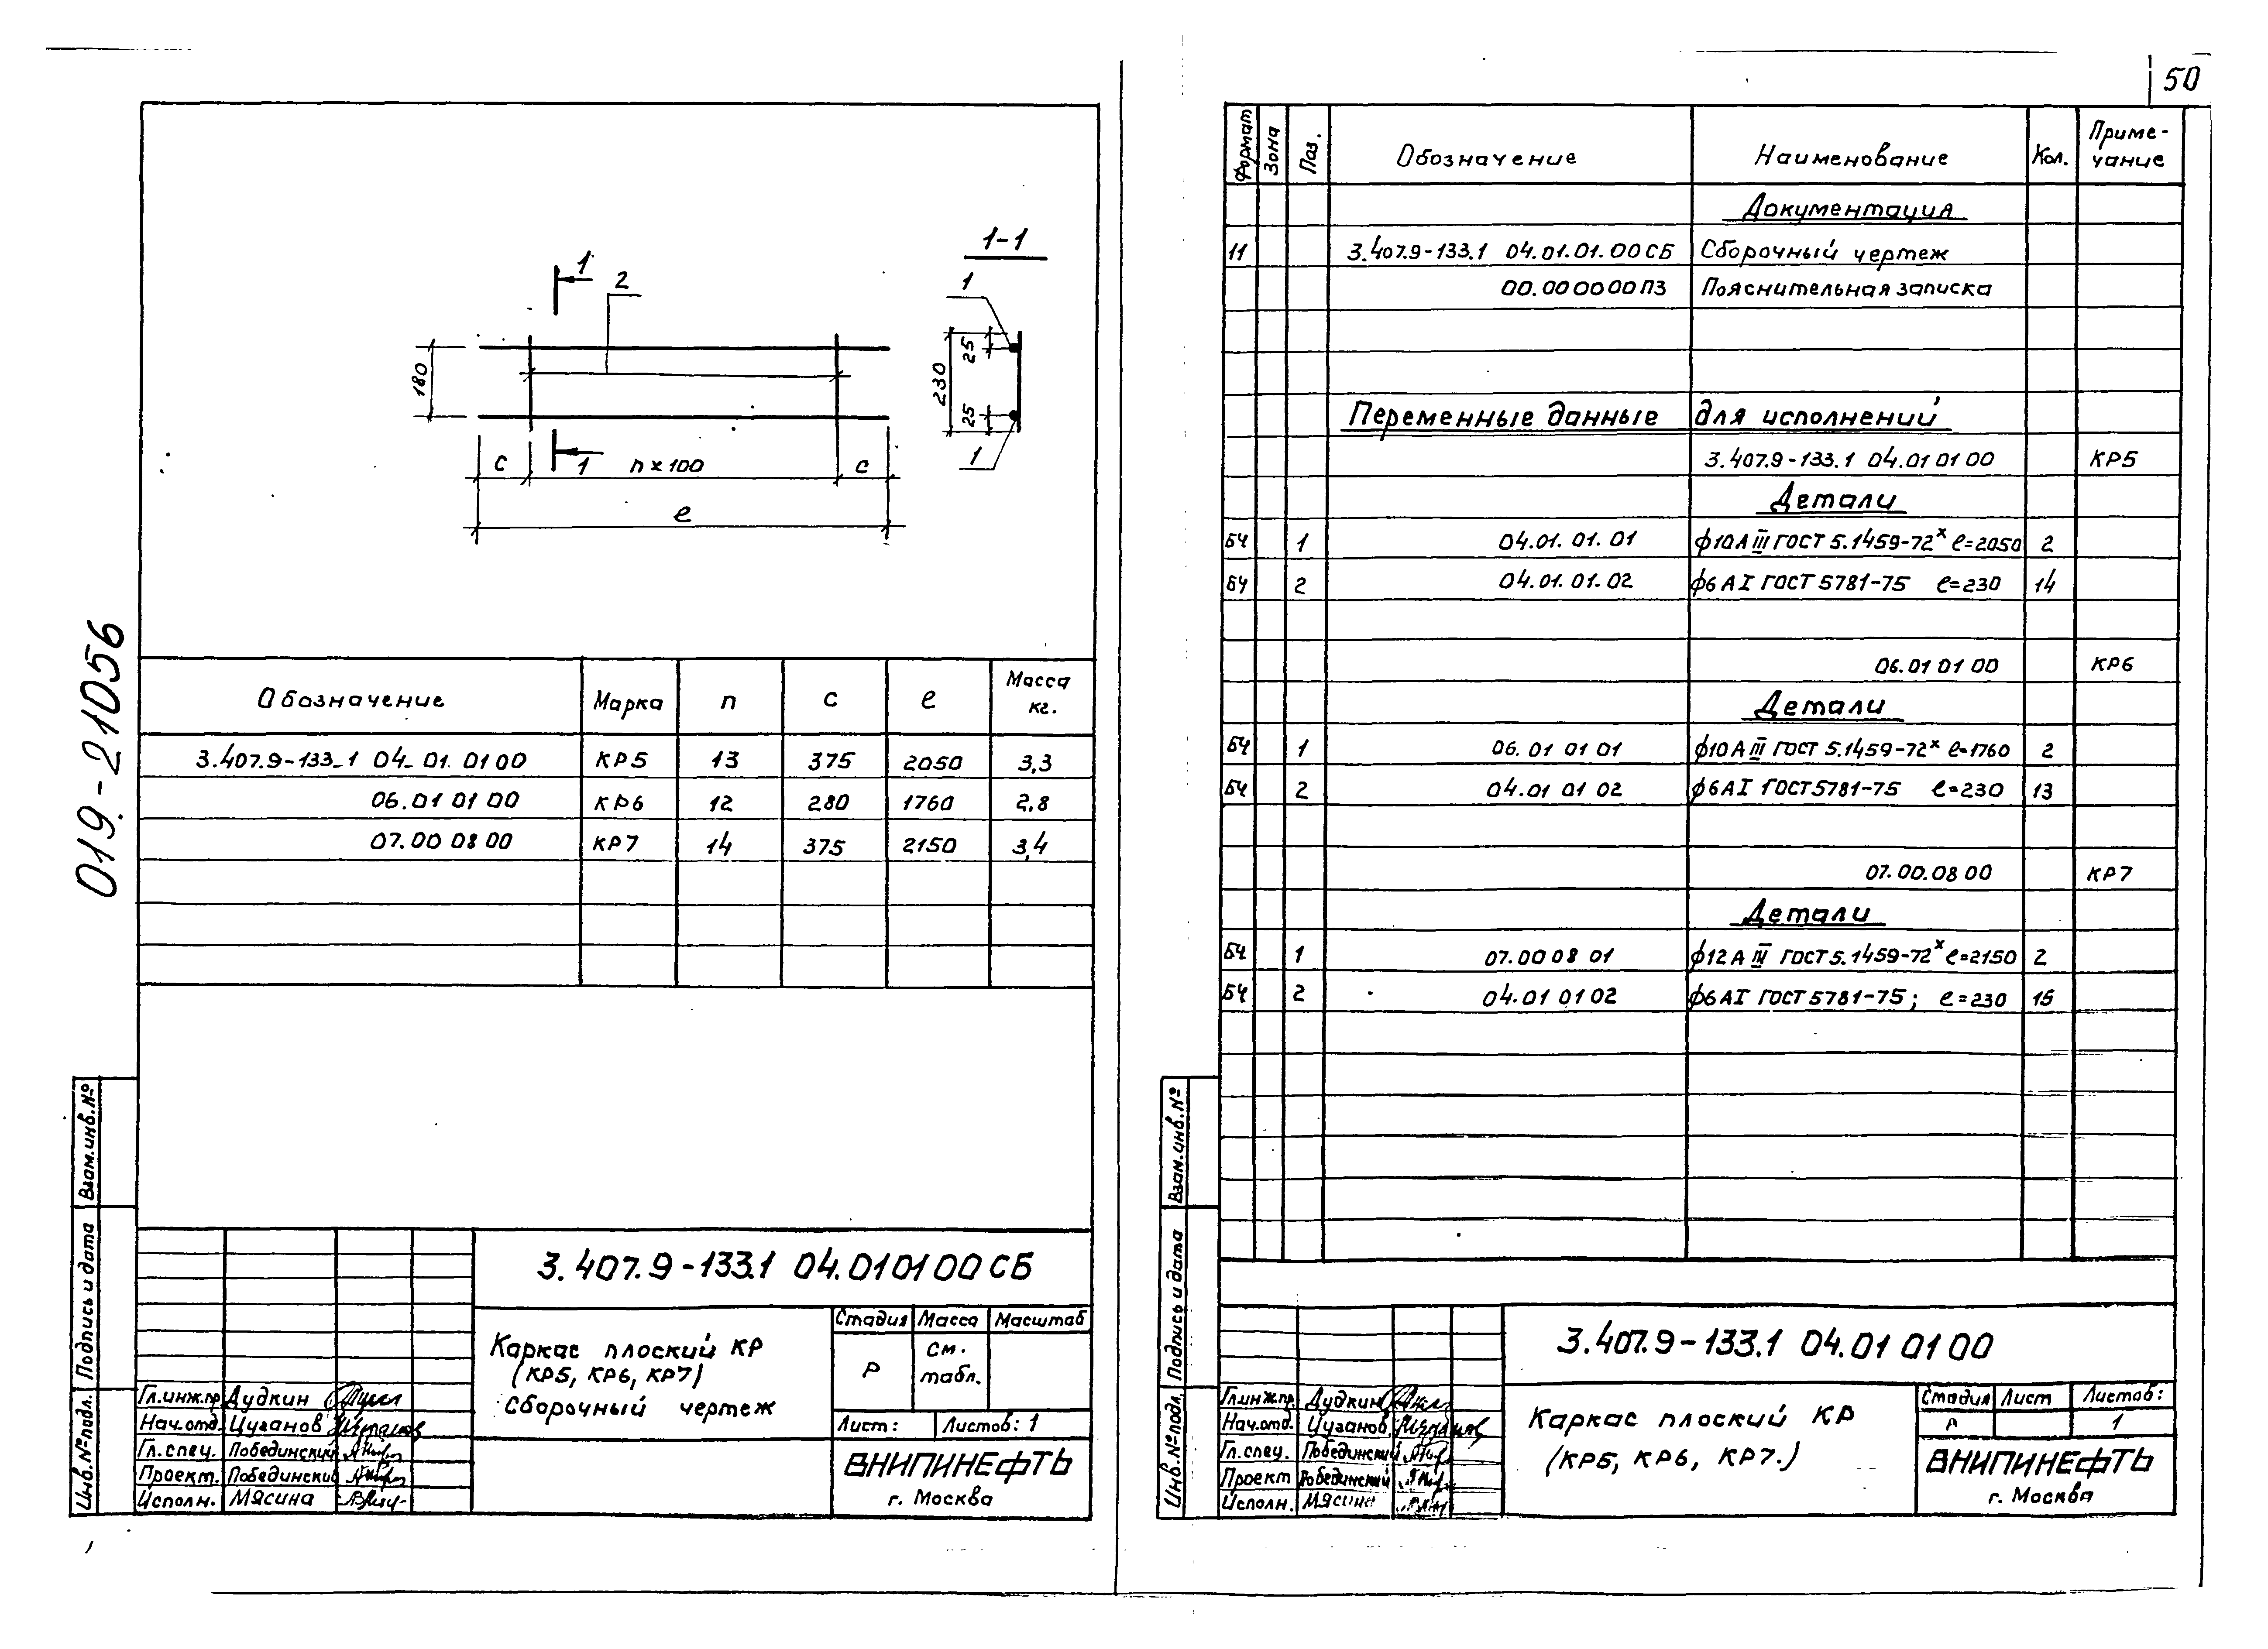 50
019-21056
1-1
1
2
1
180
230
25
25
1
c
1
n×100
c
e
Обозначение Марка n c e Масса кг.
3.407.9-133-1 04-01.0100 КР5 13 375 2050 3,3
06.01 01 00 КР6 12 280 1760 2,8
07.00 08 00 КР7 14 375 2150 3,4
Взам.инв.№
Подпись и дата
Инв.№подл.
3.407.9-133.1 04.01 01 00 СБ
Каркас плоский КР
(КР5, КР6, КР7)
Сборочный чертеж
Стадия Масса Масштаб
Р см. табл.
Лист: Листов: 1
ВНИПИНЕФТЬ
г. Москва
Гл.инж.пр. Дудкин
Нач.отд. Цуганов
Гл.спец. Побединский
Проект. Побединский
Исполн. Мясина
Формат Зона Поз. Обозначение Наименование Кол. Приме-чание
Документация
11 3.407.9-133.1 04.01.01.00СБ Сборочный чертеж
00.00 00 00 ПЗ Пояснительная записка
Переменные данные для исполнений
3.407.9-133.1 04.01 01 00 КР5
Детали
БЧ 1 04.01.01.01 ф10А III ГОСТ 5.1459-72ˣ e=2050 2
БЧ 2 04.01.01.02 ф6 А I ГОСТ 5781-75 e=230 14
06.01 01 00 КР6
Детали
БЧ 1 06.01 01 01 ф10А III ГОСТ 5.1459-72ˣ e=1760 2
БЧ 2 04.01 01 02 ф6 А I ГОСТ 5781-75 e=230 13
07.00.08 00 КР7
Детали
БЧ 1 07.00 08 01 ф12А III ГОСТ 5.1459-72ˣ e=2150 2
БЧ 2 04.01 01 02 ф6 А I ГОСТ 5781-75; e=230 15
Взам.инв.№
Подпись и дата
Инв.№подл.
3.407.9-133.1 04.01 01 00
Каркас плоский КР
(КР5, КР6, КР7.)
Стадия Лист Листов:
Р 1
ВНИПИНЕФТЬ
г. Москва
Гл.инж.пр. Дудкин
Нач.отд. Цуганов
Гл.спец. Побединский
Проект Побединский
Исполн. Мясина